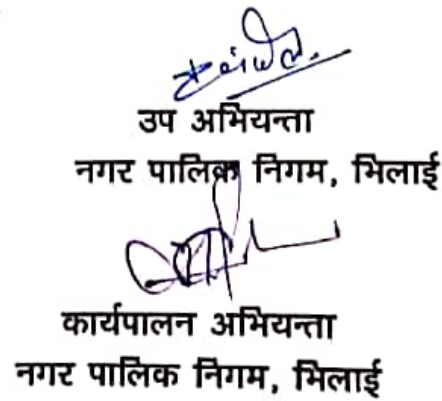 उप अभियन्ता
नगर पालिक निगम, भिलाई
कार्यपालन अभियन्ता
नगर पालिक निगम, भिलाई